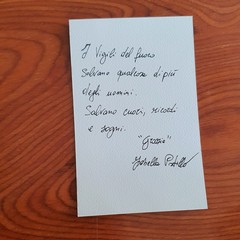 I Vigili del fuoco
Salvano qualcosa di più
degli uomini.
Salvano cuori, ricordi
e sogni.
"Grazie"
Isabella